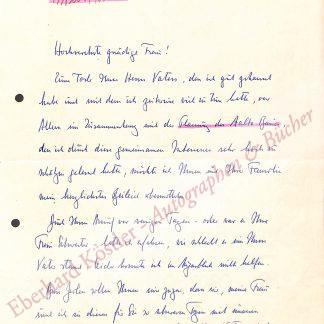 Hochverehrte gnädige Frau!
Zum Tode Ihres Herrn Vaters, den ich gut gekannt
habe und mit dem ich zeitweise viel zu tun hatte, vor
Allem im Zusammenhang mit der Planung des Aalto
den ich durch diese gemeinsamen Interessen sehr hoch zu
schätzen gelernt hatte, möchte ich Ihnen und Ihrer Familie
mein herzlichstes Beileid übermitteln.
Durch Ihren Anruf vor wenigen Tagen - oder war es Ihre
Frau Schwester - hatte ich erfahren, wie schlecht es um Ihren
Vater stand. Leider konnte ich im Augenblick nicht helfen.
Ihnen sagen, dass wir, meine Frau
und ich in diesen für Sie so schweren Tagen mit unseren
Eberhard Köstler - Autographen & Bücher